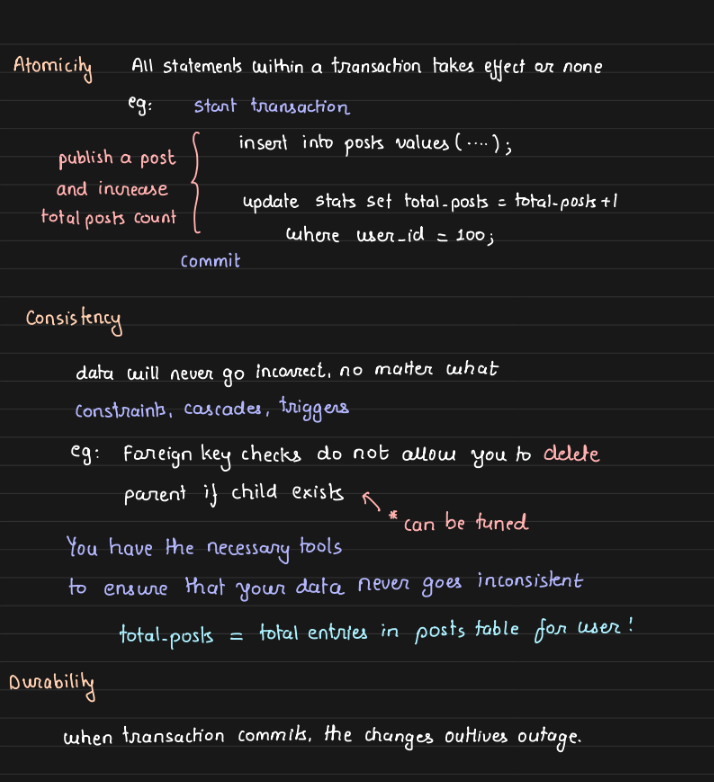 Atomicity All statements within a transaction takes effect or none
eg: start transaction
insert into posts values (....);
publish a post
and increase
total posts count
update stats set total_posts = total_posts +1
where user_id = 100;
commit
Consistency
data will never go incorrect, no matter what
constraints, cascades, triggers
eg: Foreign key checks do not allow you to delete
parent if child exists
* can be tuned
You have the necessary tools
to ensure that your data never goes inconsistent
total_posts = total entries in posts table for user!
Durability
when transaction commits, the changes outlives outage.